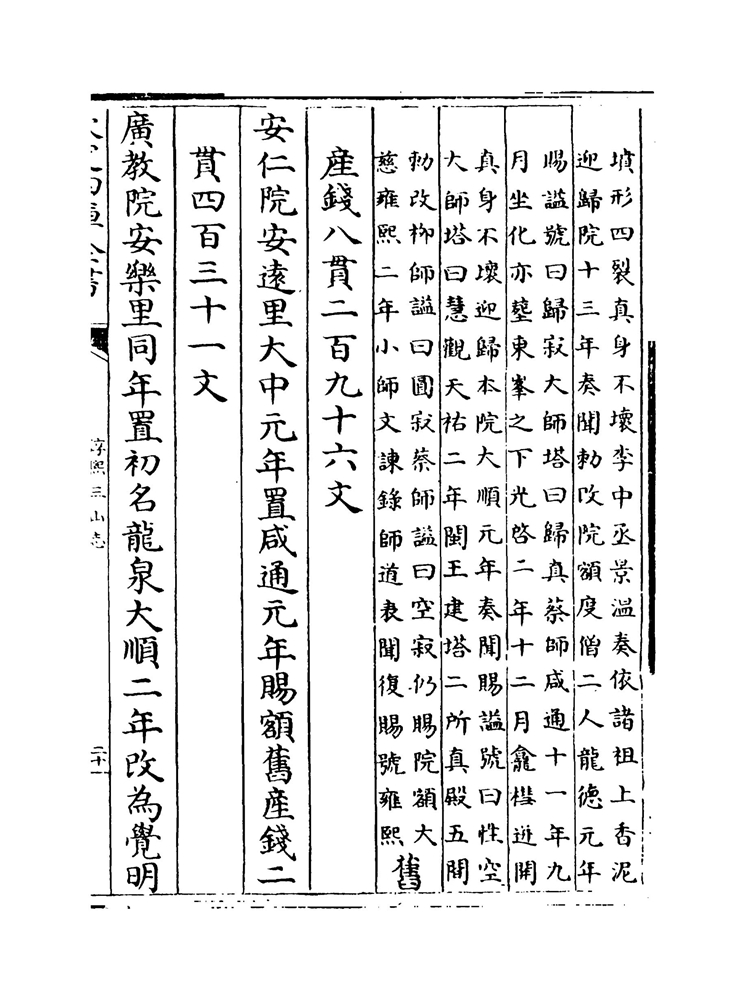 墳形四裂真身不壞李中丞景溫奏依諸祖上香泥
迎歸院十三年奏聞勅改院額度僧二人龍德元年
賜諡號曰歸寂大師塔曰歸真蔡師咸通十一年九
月坐化亦塟東峯之下光啓二年十二月龕櫬迸開
真身不壞迎歸本院大順元年奏聞賜諡號曰性空
大師塔曰慧觀天祐二年閩王建塔二所真殿五間
勅改栁師諡曰圓寂蔡師諡曰空寂仍賜院額大
慈雍熙二年小師文諫錄師道表聞復賜號雍熙
舊
産錢八貫二百九十六文
安仁院安遠里大中元年置咸通元年賜額舊産錢二
貫四百三十一文
廣教院安樂里同年置初名龍泉大順二年改為覺明
淳熙三山志
二十一